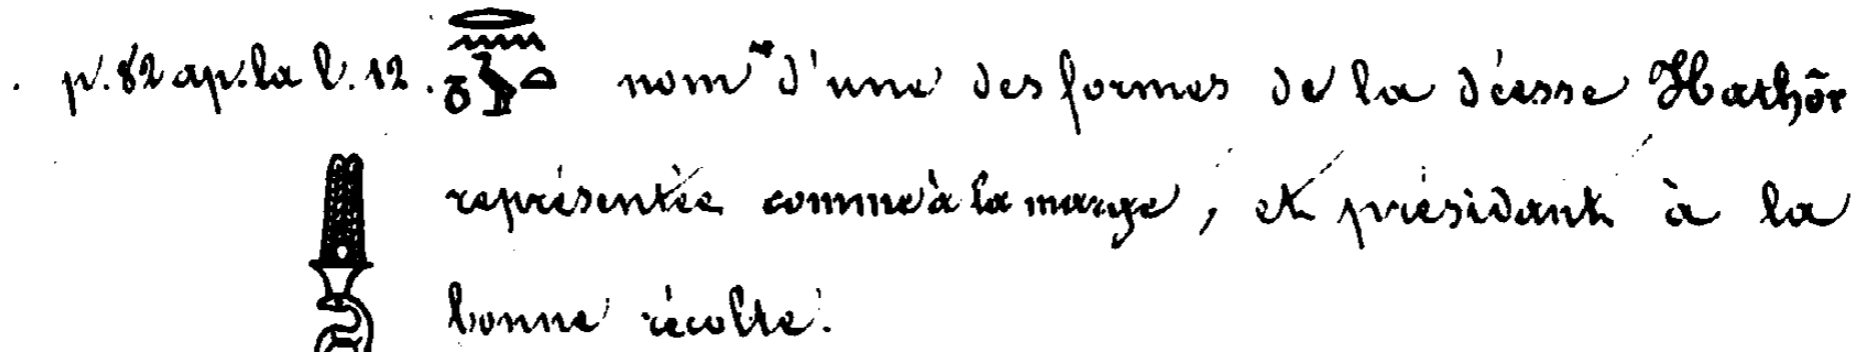 . p. 82 ap. la l. 12. nom d'une des formes de la déesse Hathōr
représentée comme à la marge, et présidant à la
bonne récolte.